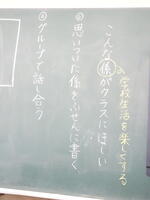 学校生活を楽しくする
こんな係がクラスにほしい
◎思いついた係をふせんに書く
◎グループで話し合う